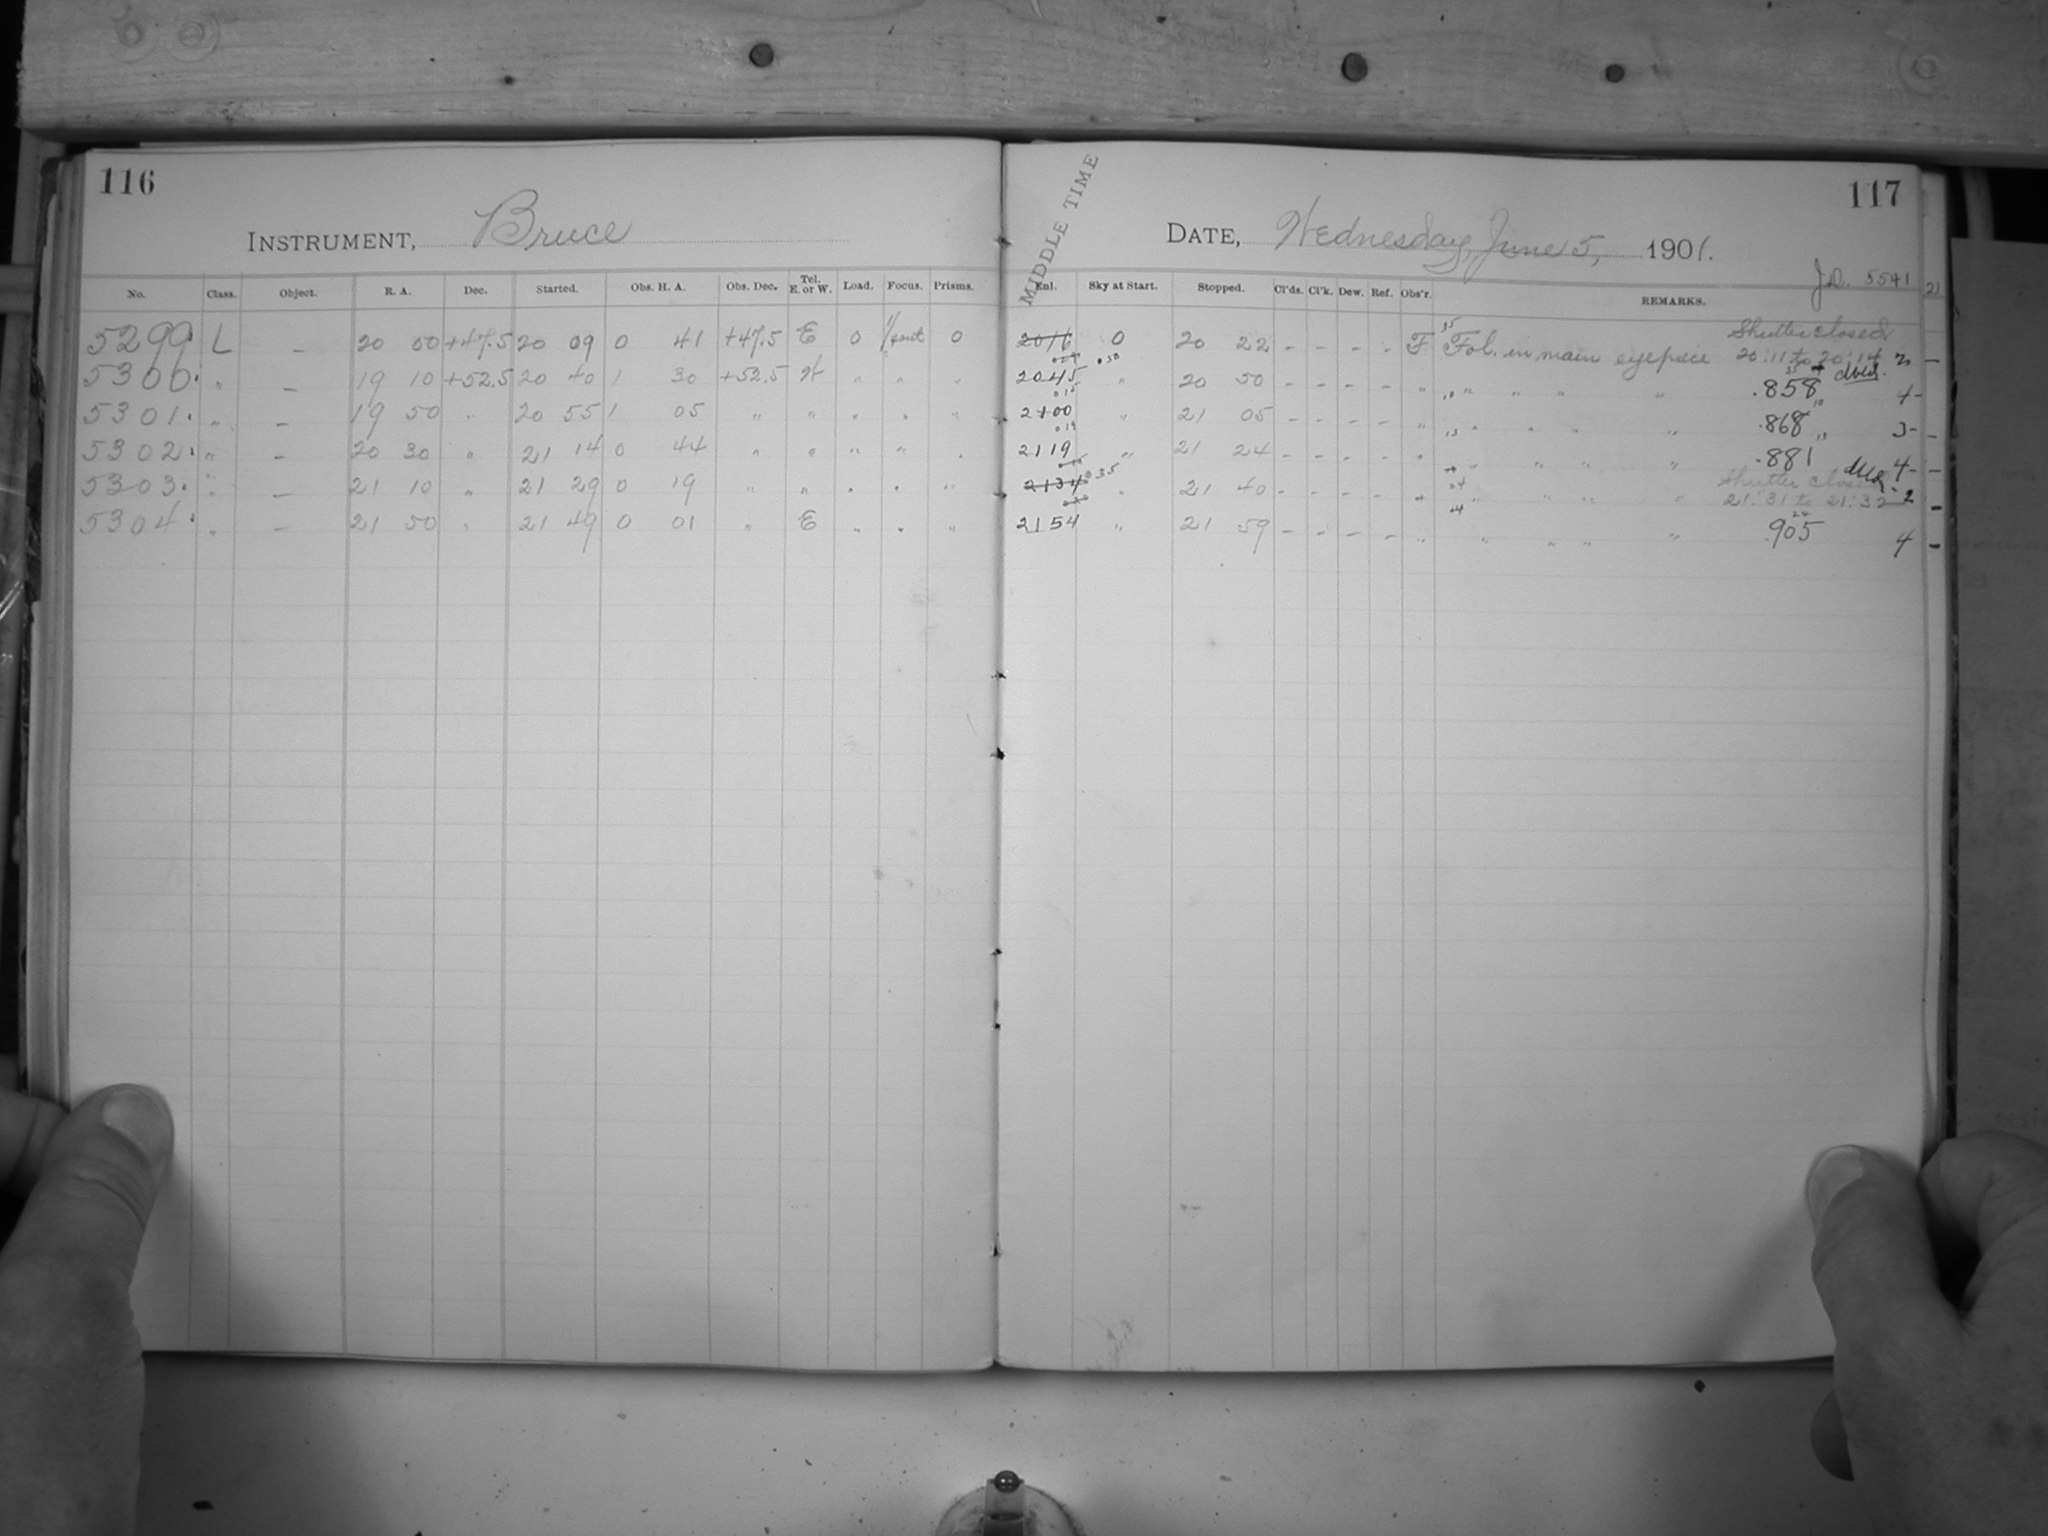 116
INSTRUMENT, Bruce
No. Class. Object. R. A. Dec. Started. Obs. H. A. Obs. Dec. Tel. E. or W. Load. Focus. Prisms.
5299. L — 20 00 +47.5 20 09 0 41 +47.5 E 0 0
5300. " — 19 10 +52.5 20 40 1 30 +52.5 W " " "
5301. " — 19 50 " 20 55 1 05 " " " " "
5302. " — 20 30 " 21 14 0 44 " " " " "
5303. " — 21 10 " 21 29 0 19 " " " " "
5304. " — 21 50 " 21 49 0 01 " E " " "
117
MIDDLE TIME
DATE, Wednesday, June 5, 1901.
J.D. 5541
Enl. Sky at Start. Stopped. Cl'ds. Cl'k. Dew. Ref. Obs'r. REMARKS. 21
2016 0 20 22 – – – – F Fol. in main eyepiece Shutter closed 20:11 to 20:14 —
2045 " 20 50 – – – – " " " " " .858 4
2100 " 21 05 – – – – " " " " " .868 3 –
2119 " 21 24 – – – – " " " " " .881 4 –
2134 " 21 40 – – – – " " " " " Shutter closed 21:31 to 21:32 2 –
2154 " 21 59 – – – – " " " " " .905 4 –